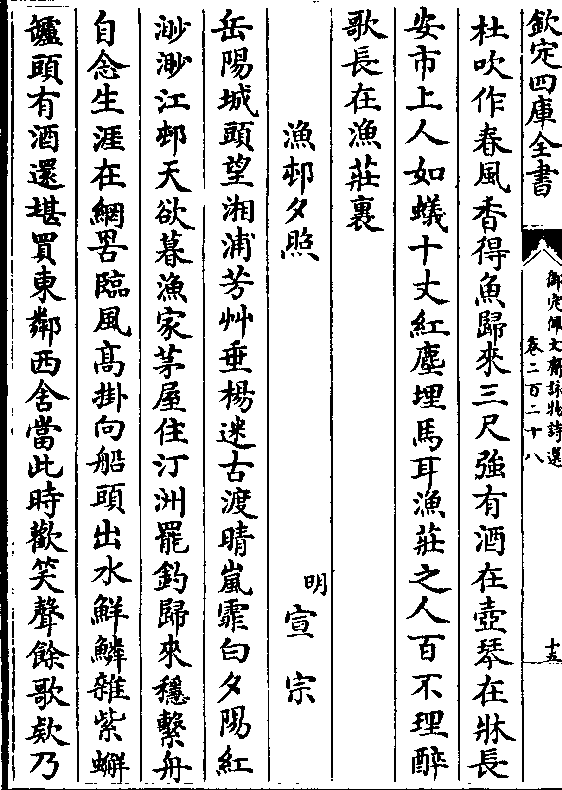 欽定四庫全書
御定佩文齋詠物詩選
卷二百二十八
十五
杜吹作春風香得魚歸來三尺強有酒在壺琴在牀長
安市上人如蟻十丈紅塵埋馬耳漁莊之人百不理醉
歌長在漁莊裏
漁邨夕照
明宣宗
岳陽城頭望湘浦芳艸垂楊迷古渡晴嵐霏白夕陽紅
渺渺江邨天欲暮漁家茅屋住汀洲罷釣歸來穩繫舟
自念生涯在網罟臨風髙掛向船頭出水鮮鱗雜紫蠏
罏頭有酒還堪買東鄰西舍當此時歡笑聲餘歌欸乃